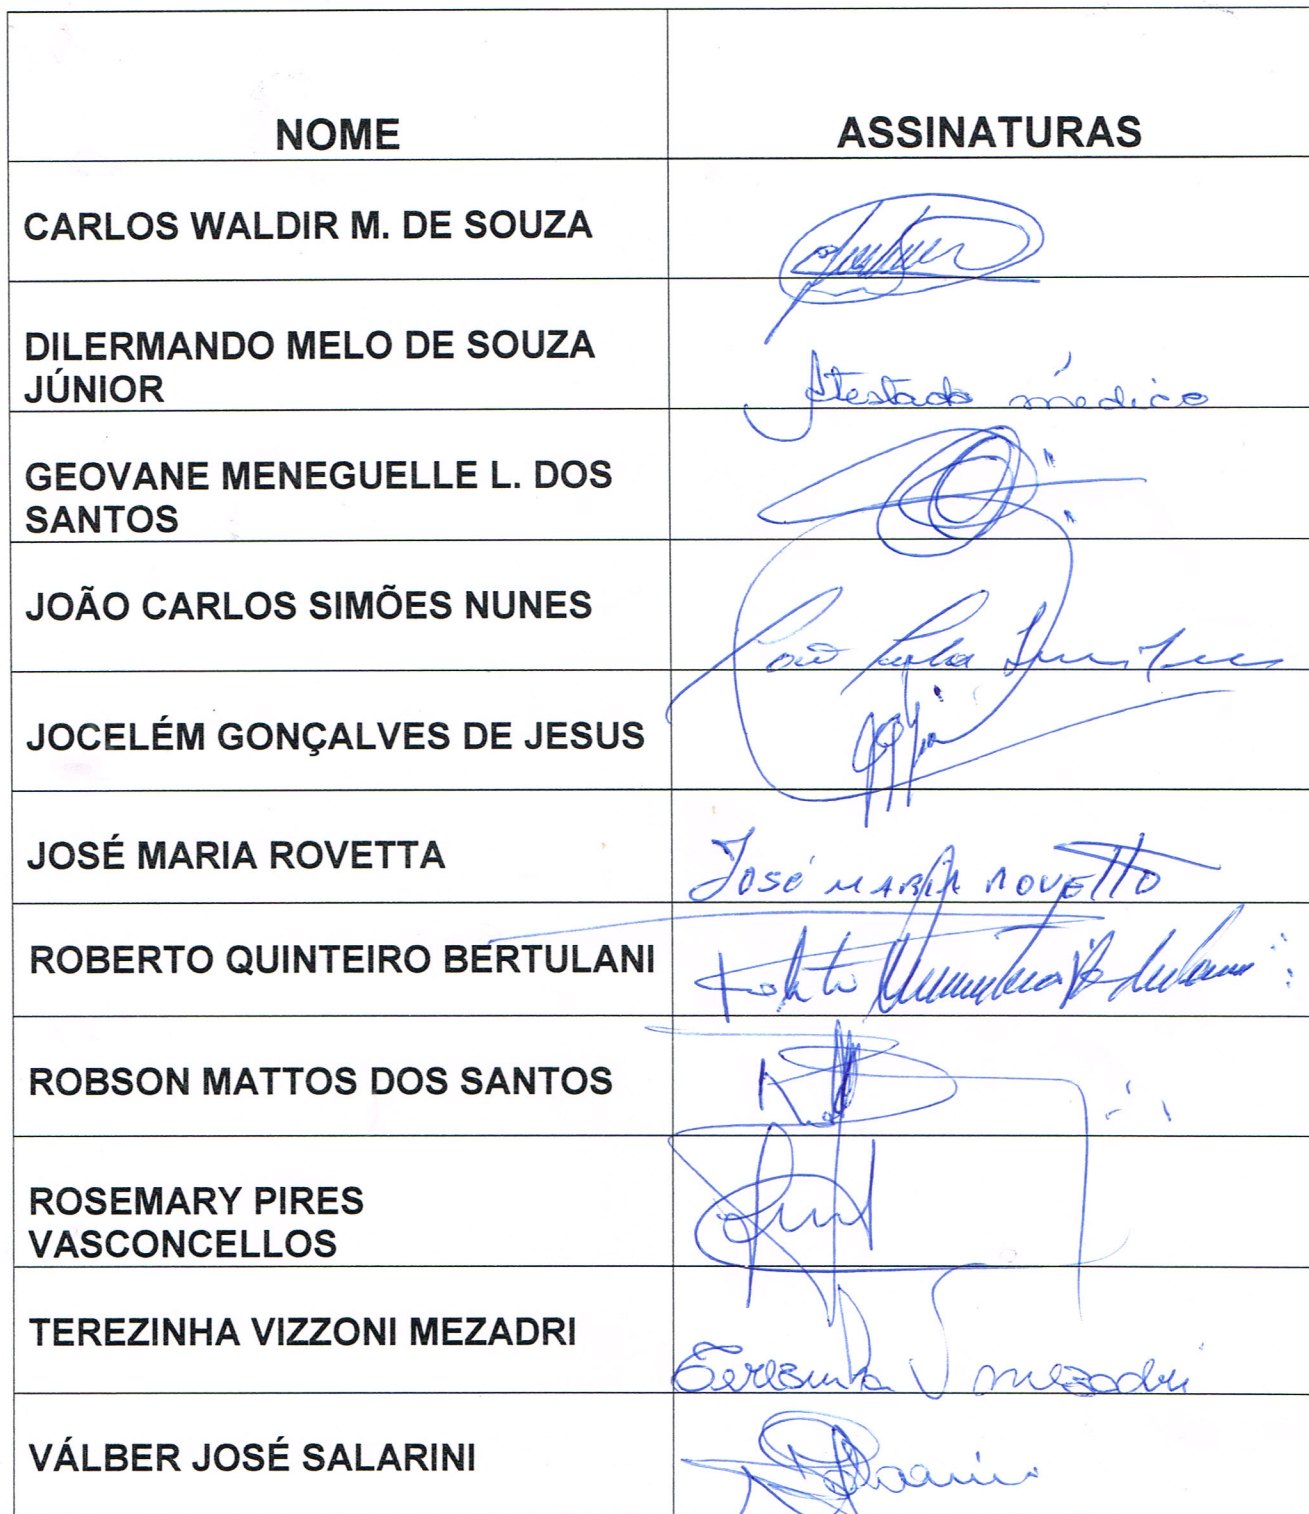 NOME ASSINATURAS
CARLOS WALDIR M. DE SOUZA
DILERMANDO MELO DE SOUZA
JÚNIOR Atestado médico
GEOVANE MENEGUELLE L. DOS
SANTOS
JOÃO CARLOS SIMÕES NUNES
JOCELÉM GONÇALVES DE JESUS
JOSÉ MARIA ROVETTA JOSÉ MARIA ROVETTA
ROBERTO QUINTEIRO BERTULANI
ROBSON MATTOS DOS SANTOS
ROSEMARY PIRES
VASCONCELLOS
TEREZINHA VIZZONI MEZADRI Terezinha V mezadri
VÁLBER JOSÉ SALARINI